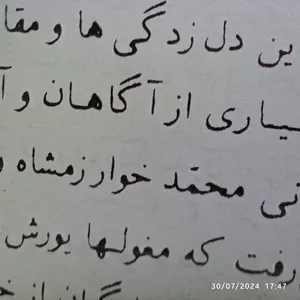 ین دل زدگی ها و مقا
سیاری از آگاهان و آ
نی محمّد خوارزمشاه و
رفت که مغولها یورش
30/07/2024 17:47